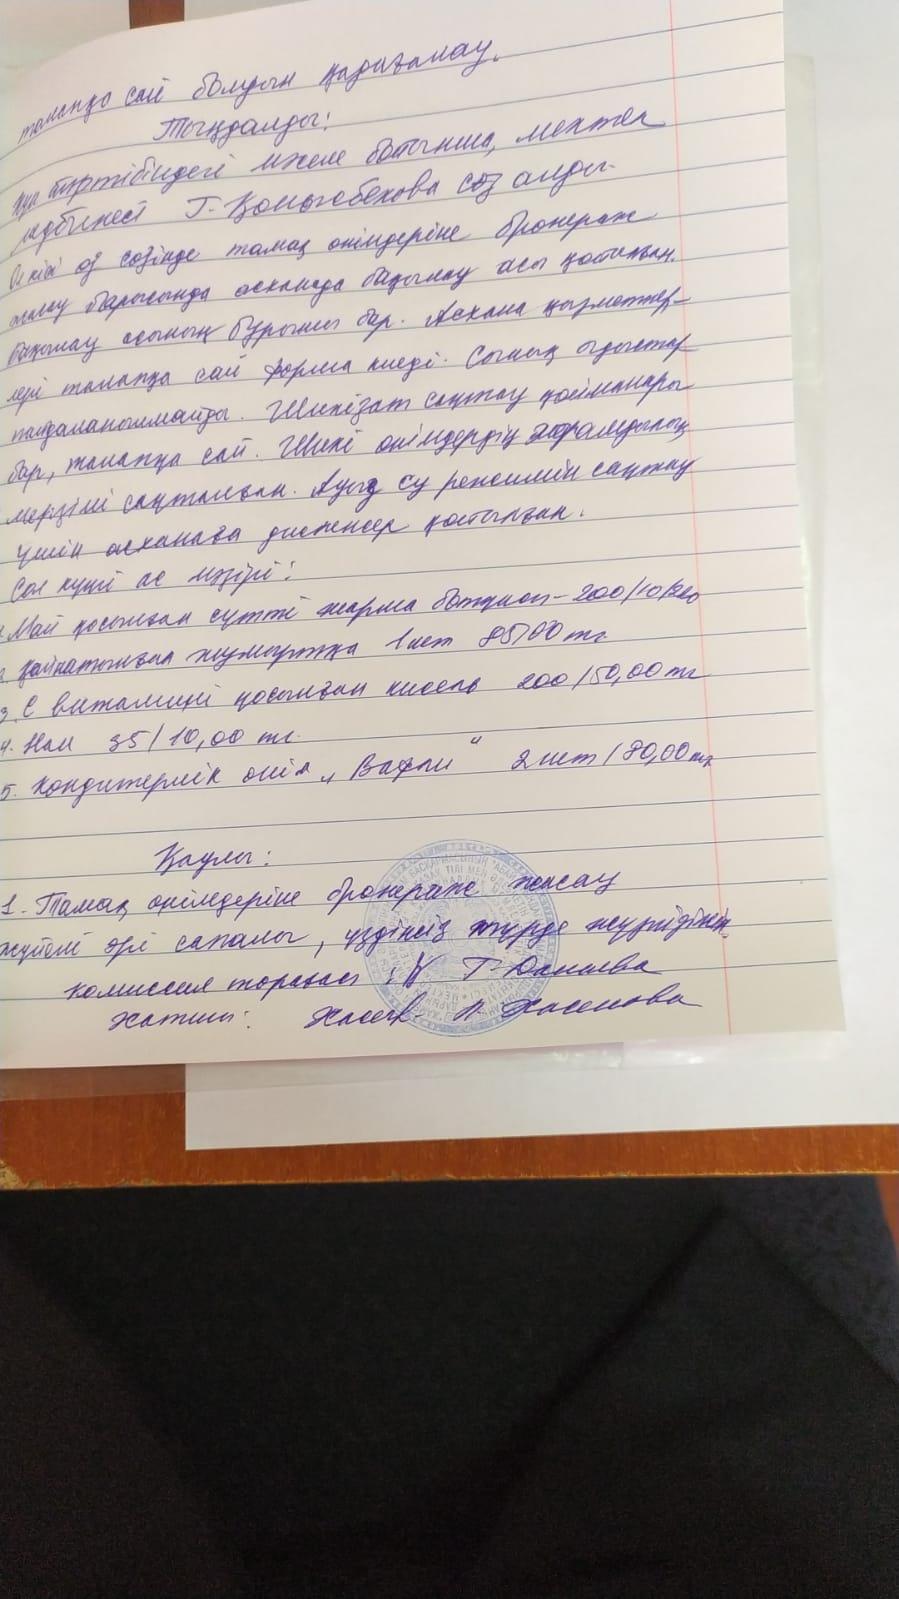 талапқа сай болуын қадағалау.
Тыңдалды:
Күн тәртібіндегі мәселе бойынша, мектеп
медбикесі Г. сөз алды.
Ол кісі өз сөзінде тамақ өнімдеріне бракераж
жасау барысында асханада бақылау асы қойылған.
бақылау асының бұрышы бар. Асхана қызметкер-
лері талапқа сай форма киеді. Сынық ыдыстар
пайдаланылмайды. Шикізат сақтау қоймалары
бар, талапқа сай. Шикі өнімдердің жарамдылық
мерзімі сақталған. Ауыз су режимін сақтау
үшін асханаға диспенсер қойылған.
Сол күнгі ас мәзірі:
1. Май қосылған сүтті жарма ботқасы - 200/10/
2. Қайнатылған жұмыртқа 1 шт 85,00 тг
3. С витамині қосылған кисель 200/50,00 тг
4. Нан 35/10,00 тг.
5. Кондитерлік өнім „Вафли" 2 шт/80,00 тг
Қаулы:
1. Тамақ өнімдеріне бракераж жасау
жүйелі әрі сапалы, үздіксіз түрде жүргізілсін.
комиссия төрағасы: Г.
Хатшы: Хасен Хасенова